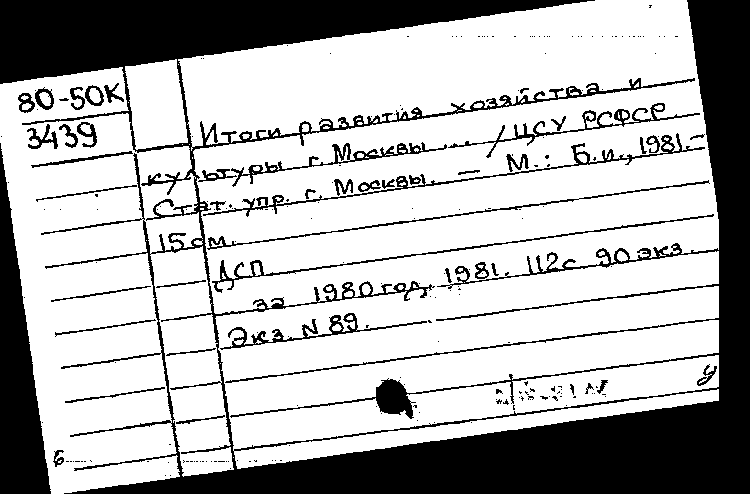 80-50К
3439
Итоги развития хозяйства и
культуры г. Москвы ... / ЦСУ РСФСР.
Стат. упр. г. Москвы. — М.: Б.и., 1981.-
15 см.
ДСП
... за 1980 год. 1981. 112с 90 экз.
Экз. N 89.
у
б